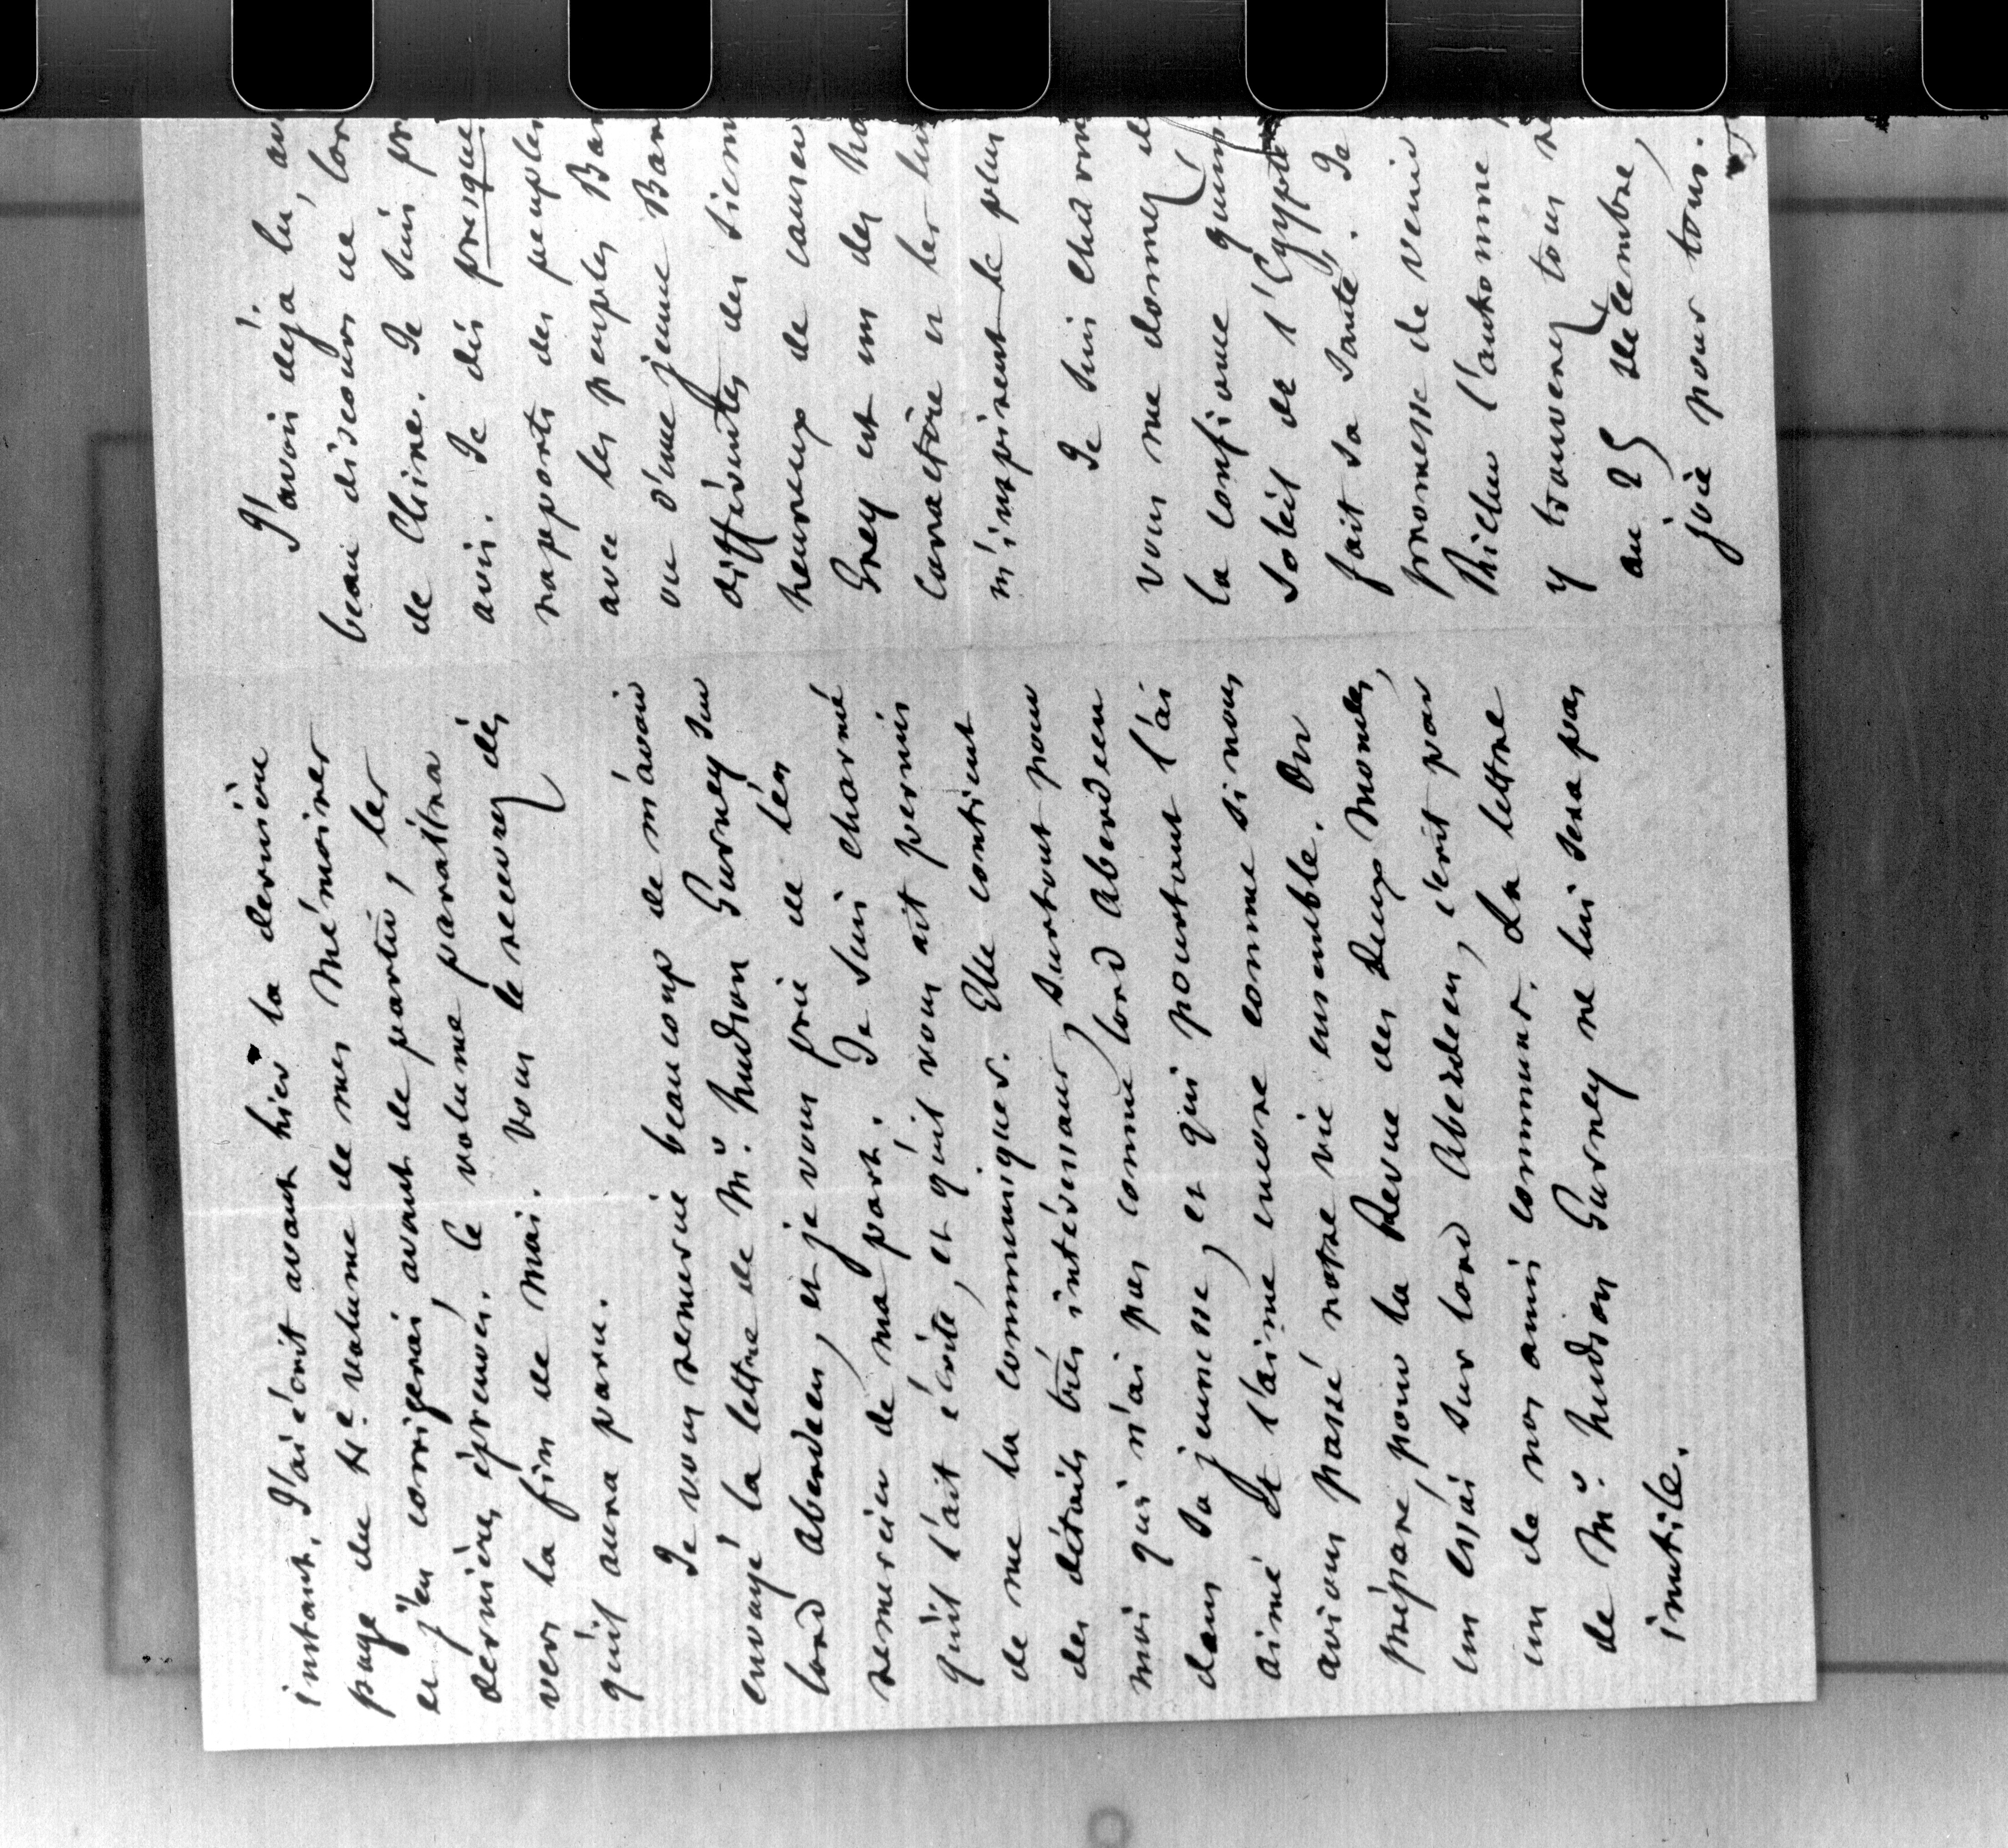 instant. J'ai écrit avant hier la dernière
page du 4e. volume de mes Mémoires
et j'en corrigerai avant de partir, les
dernières épreuves. Le volume paraîtra
vers la fin de Mai. Vous le recevrez dès
qu'il aura paru.
Je vous remercie beaucoup de m'avoir
envoyé la lettre de Mr. Hudson Gurney sur
lord Aberdeen, et je vous prie de l'en
remercier de ma part. Je suis charmé
qu'il l'ait écrite, et qu'il vous ait permis
de me la communiquer. Elle contient
des détails très intéressans, surtout pour
moi qui n'ai pas connu lord Aberdeen
dans sa jeunesse, et qui pourtant l'ai
aimé et l'aime encore comme si nous
avions passé notre vie ensemble. On
prépare, pour la Revue des deux Mondes,
un essai sur lord Aberdeen, écrit par
un de nos amis communs. La lettre
de Mr. Hudson Gurney ne lui sera pas
inutile.
J'avois déjà lu,
beau discours de
de Chine. Je suis
avis. Je dis presque
rapports des peuples
avec les peuples
ou d'une jeune
différentes des
heureux de causer
Grey est un des
caractère et les
m'inspirent le plus
Je suis
vous me donnez
la confiance
soleil de l'Egypte
fait sa santé. Je
promesse de venir
Richer l'automne
y trouverez tous
au 25 décembre,
joie pour tous.